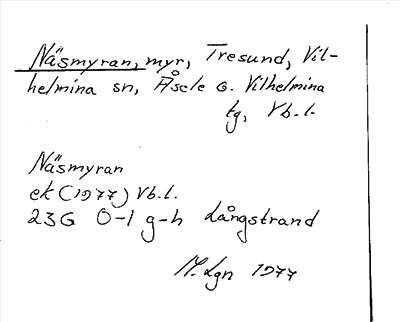 Näsmyran, myr, Tresund, Vil-
helmina sn, Åsele o. Vilhelmina
tg, Vb.l.
Näsmyran
ek (1977) Vb.l.
23G 0-1 g-h Långstrand
M.Lgn 1977